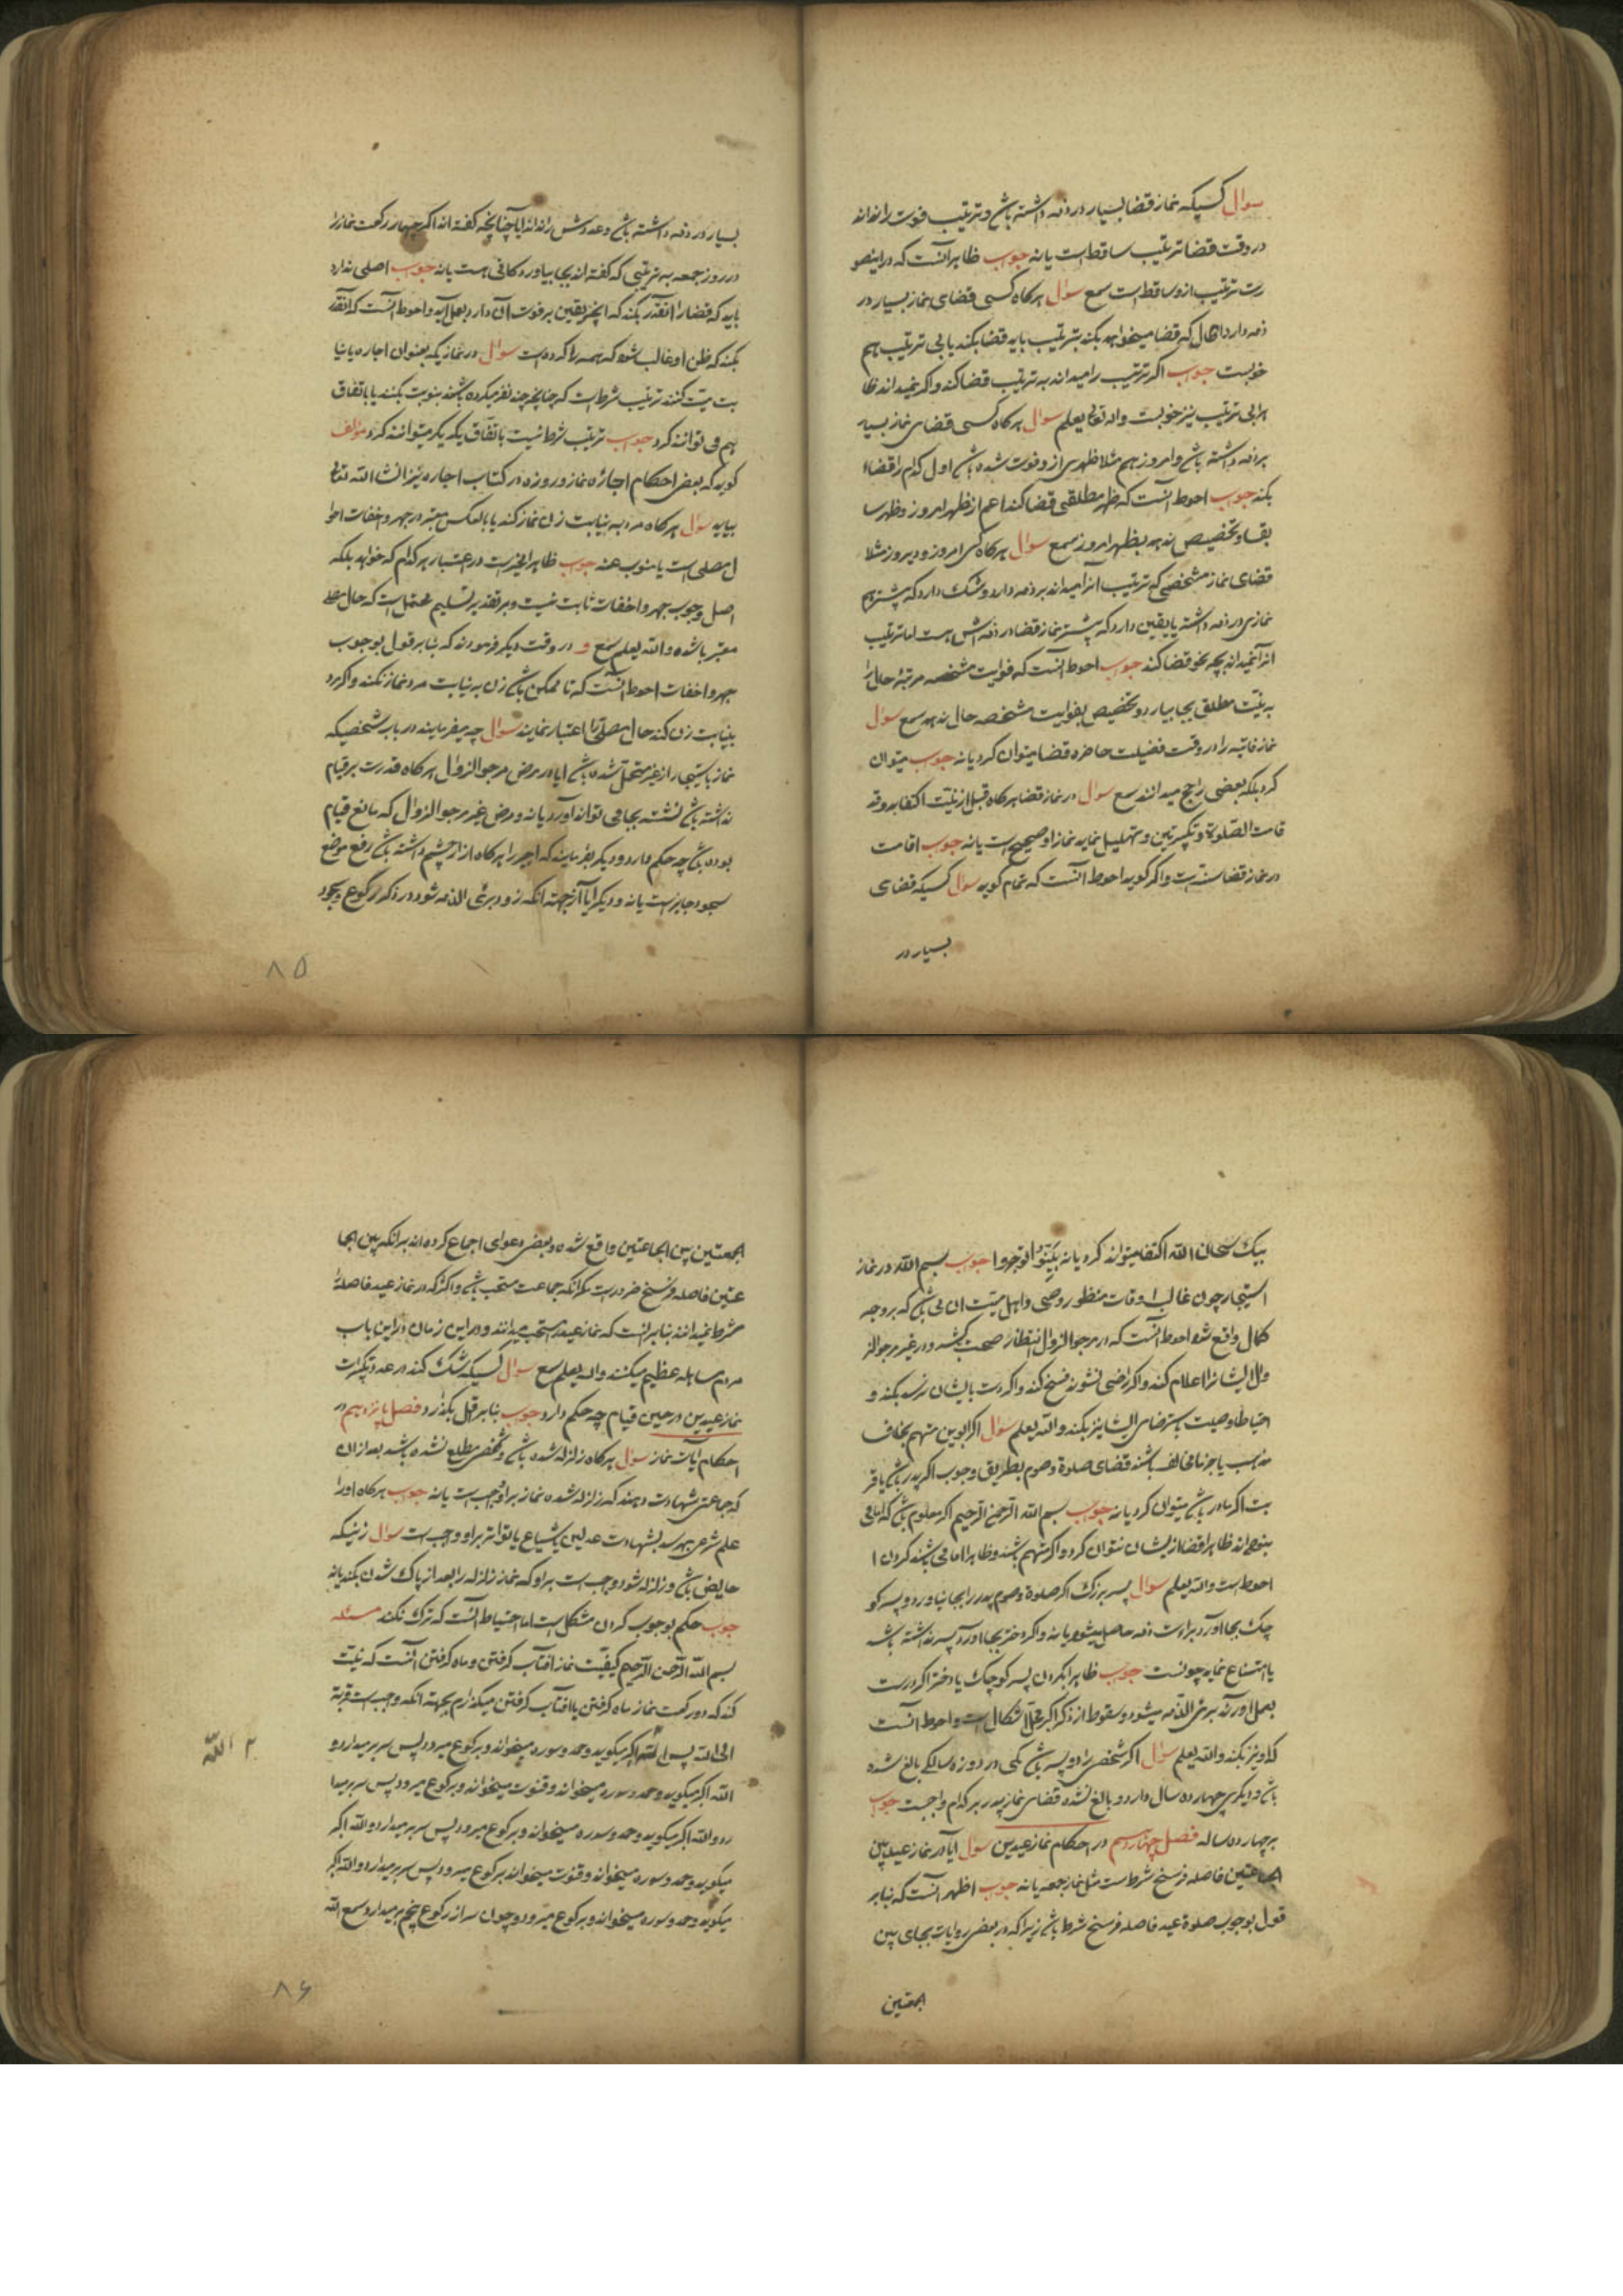 سوال کسیکه نماز قضا بسیار در ذمه داشته باشد و ترتیب فوت را نداند
در وقت قضا ترتیب ساقط است یا نه جوب ظاهر آنست که در اینصو
رت ترتیب ازو ساقط است سمع سوال هرکاه کسی قضای نماز بسیار در
ذمه دارد الحال که قضا میخواهد بکند بترتیب باید قضا بکند یا بی ترتیب هم
خوبست جوب اکر ترتیب را میداند به ترتیب قضا کند و اکر نمیداند ظا
هرا بی ترتیب نیز خوبست والله تعالی یعلم سوال هرکاه کسی قضای نماز بسیار
بر ذمه داشته باشد و امروز هم مثلا ظهری از و فوت شده باشد اول کدام را قضا
بکند جوب احوط آنست که ظهر مطلقی قضا کند اعم از ظهر امروز و ظهر سا
بقا و تخصیص ندهد بظهر امروز سمع سوال هرکاه کسی امروز و دیروز مثلا
قضای نماز مشخصی که ترتیب آنرا میداند بر ذمه دارد و شک دارد که پیشتر هم
نمازی در ذمه داشته یا یقین دارد که پیشتر نماز قضا در ذمه اش هست اما ترتیب
آنرا نمیداند بچه نحو قضا کند جوب احوط آنست که فوایت مشخصه مرتبهٔ حال را
به نیت مطلق بجا بیارد و تخصیص بفوایت مشخصه حال ندهد سمع سوال
نماز فائته را در وقت فضیلت حاضره قضا میتوان کرد یا نه جوب میتوان
کرد بلکه بعضی راجح میدانند سمع سوال در نماز قضا هرکاه قبل از نیت اکتفا بدو قد
قامت الصلوة و تکبیرتین و تهلیل نماید نماز او صحیح است یا نه جوب اقامت
در نماز قضا سنت است و اکر کوید احوط آنست که تمام کوید سوال کسیکه قضای
بسیار در
بسیار در ذمه داشته باشد و عددش را نداند آیا چنانچه کفته اند اکر چهار رکعت نماز را
در روز جمعه به ترتیبی که کفته اند بجا بیاورد کافی است یا نه جوب اصلی ندارد
باید که قضا را انقدر بکند که آنچه یقین بر فوت آن دارد بعمل آید و احوط آنست که انقدر
بکند که ظن او غالب شود که همه را کرده است سوال در نمازیکه بعنوان اجاره یا نیا
بت میت کنند ترتیب شرط است که چنانچه چند نفر میکرده باشند بنوبت بکنند یا باتفاق
هم می توانند کرد جوب ترتیب شرط نیست باتفاق یکدیکر میتوانند کرد مولف
کوید که بعض احکام اجازه نماز و روزه در کتاب اجاره نیز انشاءالله تعالی
بیاید سوال هرکاه مرد به نیابت زن نماز کند یا بالعکس معتبر در جهر و اخفات احوا
ل مصلی است یا منوب عنه جوب ظاهرا مخیر است در اعتبار هر کدام که خواهد بلکه
اصل وجوب جهر و اخفات ثابت نیست و بر تقدیر تسلیم محتمل است که حال مصلی
معتبر باشد والله یعلم سمع و در وقت دیکر فرمودند که بنابر قول بوجوب
جهر و اخفات احوط آنست که تا ممکن باشد زن به نیابت مرد نماز نکند و اکر مرد
بنیابت زن کند حال مصلی را اعتبار نمایند سوال چه میفرمایند در باب شخصیکه
نماز باستیجار از غیر متحمل شده باشد ایا در مرض مرجو الزوال هرکاه قدرت بر قیام
نداشته باشد نشسته بجا می تواند آورد یا نه و مرض غیر مرجو الزوال که مانع قیام
بوده باشد چه حکم دارد و دیکر بفرمایند که اجیر را هرکاه ازار چشم داشته باشد رفع موضع
سجود جایز است یا نه و دیکر ایا از جهة انکه زود بری الذمه شود در ذکر رکوع و سجود
۸۵
بیک سبحان الله اکتفا میتواند کرد یا نه بینوا توجروا جوب بسم الله در نماز
استیجار چون غالب اوقات منظور وصی و اهل میت ان می باشد که بر وجه
کمال واقع شود احوط آنست که در مرجو الزوال انتظار صحت بکشد و در غیر مرجو الز
وال ایشانرا اعلام کند و اکر راضی نشوند فسخ کند و اکر دست بایشان نرسد بکند و
احتیاطا وصیت باسترضای ایشان نیز بکند والله یعلم سوال اکر ابوین متهم بخلاف
مذهب یا جزما مخالف باشند قضای صلوة و صوم بطریق وجوب اکر پدر باشد یا قر
بت اکر مادر باشد میتوان کرد یا نه جوب بسم الله الرحمن الرحیم اکر معلوم باشد که امامی
نبوده اند ظاهرا قضا از ایشان نتوان کرد و اکر متهم باشند و ظاهرا امامی باشند کردن ا
احوط است والله یعلم سوال پسر بزرک اکر صلوة و صوم پدر را بجا نیاورد و پسر کو
چک بجا آورد براءت ذمه حاصل میشود یا نه و اکر دختر بجا آورد و پسر نداشته باشد
یا امتناع نماید چونست جوب ظاهرا بکردن پسر کوچک یا دختر اکر درست
بعمل آورند بری الذمه میشود و سقوط از ذکر اکبر محل اشکال است و احوط آنست
که او نیز بکند والله یعلم سوال اکر شخصی را دو پسر باشد یکی در دوزده سالکی بالغ شده
باشد و دیکری چهارده سال دارد و بالغ نشده قضای نماز پدر بر کدام واجبست جوب
بر چهارده ساله فصل چهاردهم در احکام نماز عیدین سوال آیا در نماز عید بین
الجماعتین فاصله فرسخ شرط است مثل نماز جمعه یا نه جوب اظهر آنست که بنابر
قول بوجوب صلوة عید فاصله فرسخ شرط باشد زیرا که در بعض روایات بجای بین
الجمعتین
الجمعتین بین الجماعتین واقع شده و بعض دعوای اجماع کرده اند بر انکه بین الجما
عتین فاصله فرسخ ضرور است مکر انکه جماعت مستحب باشد و اکثر که در نماز عید فاصله را
شرط نمیدانند بنابر انست که نماز عید را مستحب میدانند و در این زمان در این باب
مردم مساهله عظیم میکنند والله یعلم سمع سوال کسیکه شک کند در عدد تکبیرات
نماز عیدین در حین قیام چه حکم دارد جوب بنابر اقل بکذارد فصل پانزدهم در
احکام آیات نماز سوال هرکاه زلزله شده باشد و شخص مطلع نشده باشد بعد از ان
که جماعتی شهادت دهند که زلزله شده نماز بر او واجب است یا نه جوب هرکاه او را
علم شرعی بهرسد بشهادت عدلین یا شیاع یا تواتر بر او واجب است سوال زنیکه
حایض باشد و زلزله شود واجب است بر او که نماز زلزله را بعد از پاک شدن بکند یا نه
جوب حکم بوجوب کردن مشکل است اما احتیاط آنست که ترک نکند مسئله
بسم الله الرحمن الرحیم کیفیت نماز افتاب کرفتن و ماه کرفتن آنست که نیت
کند که دو رکعت نماز ماه کرفتن یا افتاب کرفتن میکذارم بجهة انکه واجب است قربة
الی الله پس الله اکبر میکوید و حمد و سوره میخواند و برکوع میرود پس سر برمیدارد و
۲ الله
الله اکبر میکوید و حمد و سوره میخواند و قنوت میخواند و برکوع میرود پس سر برمیدا
رد و الله اکبر میکوید و حمد و سوره میخواند و برکوع میرود پس سر برمیدارد و الله اکبر
میکوید و حمد و سوره میخواند و قنوت میخواند برکوع میرود پس سر برمیدارد و الله اکبر
میکوید و حمد و سوره میخواند و برکوع میرود و چون سر از رکوع پنجم برمیدارد سمع الله
۸۶